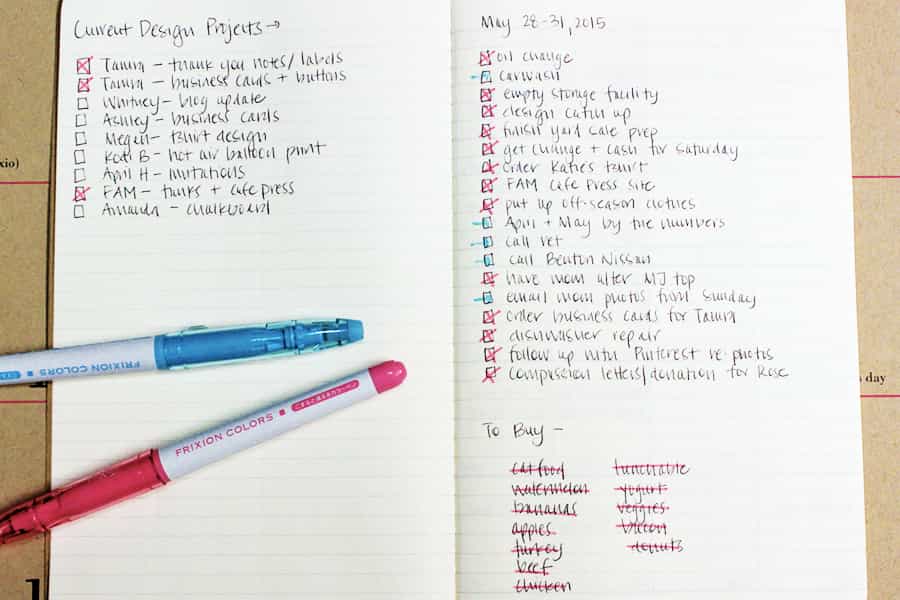 Current Design Projects →
Tamra - thank you notes/labels
Tamra - business cards + buttons
Whitney - blog update
Ashley - business cards
Megen - tshirt design
Kodi B - hot air balloon print
April H - invitations
FAM - tanks + cafe press
Amanda - chalkboard
FRIXION COLORS
FRIXION COLORS
May 28-31, 2015
oil change
carwash
empty storage facility
design catch up
finish yard sale prep
get change + cash for Saturday
order Katie's tshirt
FAM Cafe Press site
put up off-season clothes
April + May by the numbers
call vet
call Benton Nissan
have mom alter MJ top
email mom photos from Sunday
order business cards for Tamra
dishwasher repair
follow up with Pinterest re: photos
compassion letters/donation for Rose
To Buy -
cat food
watermelon
bananas
apples
turkey
beef
chicken
lunchable
yogurt
veggies
bacon
donuts
xio)
day
1